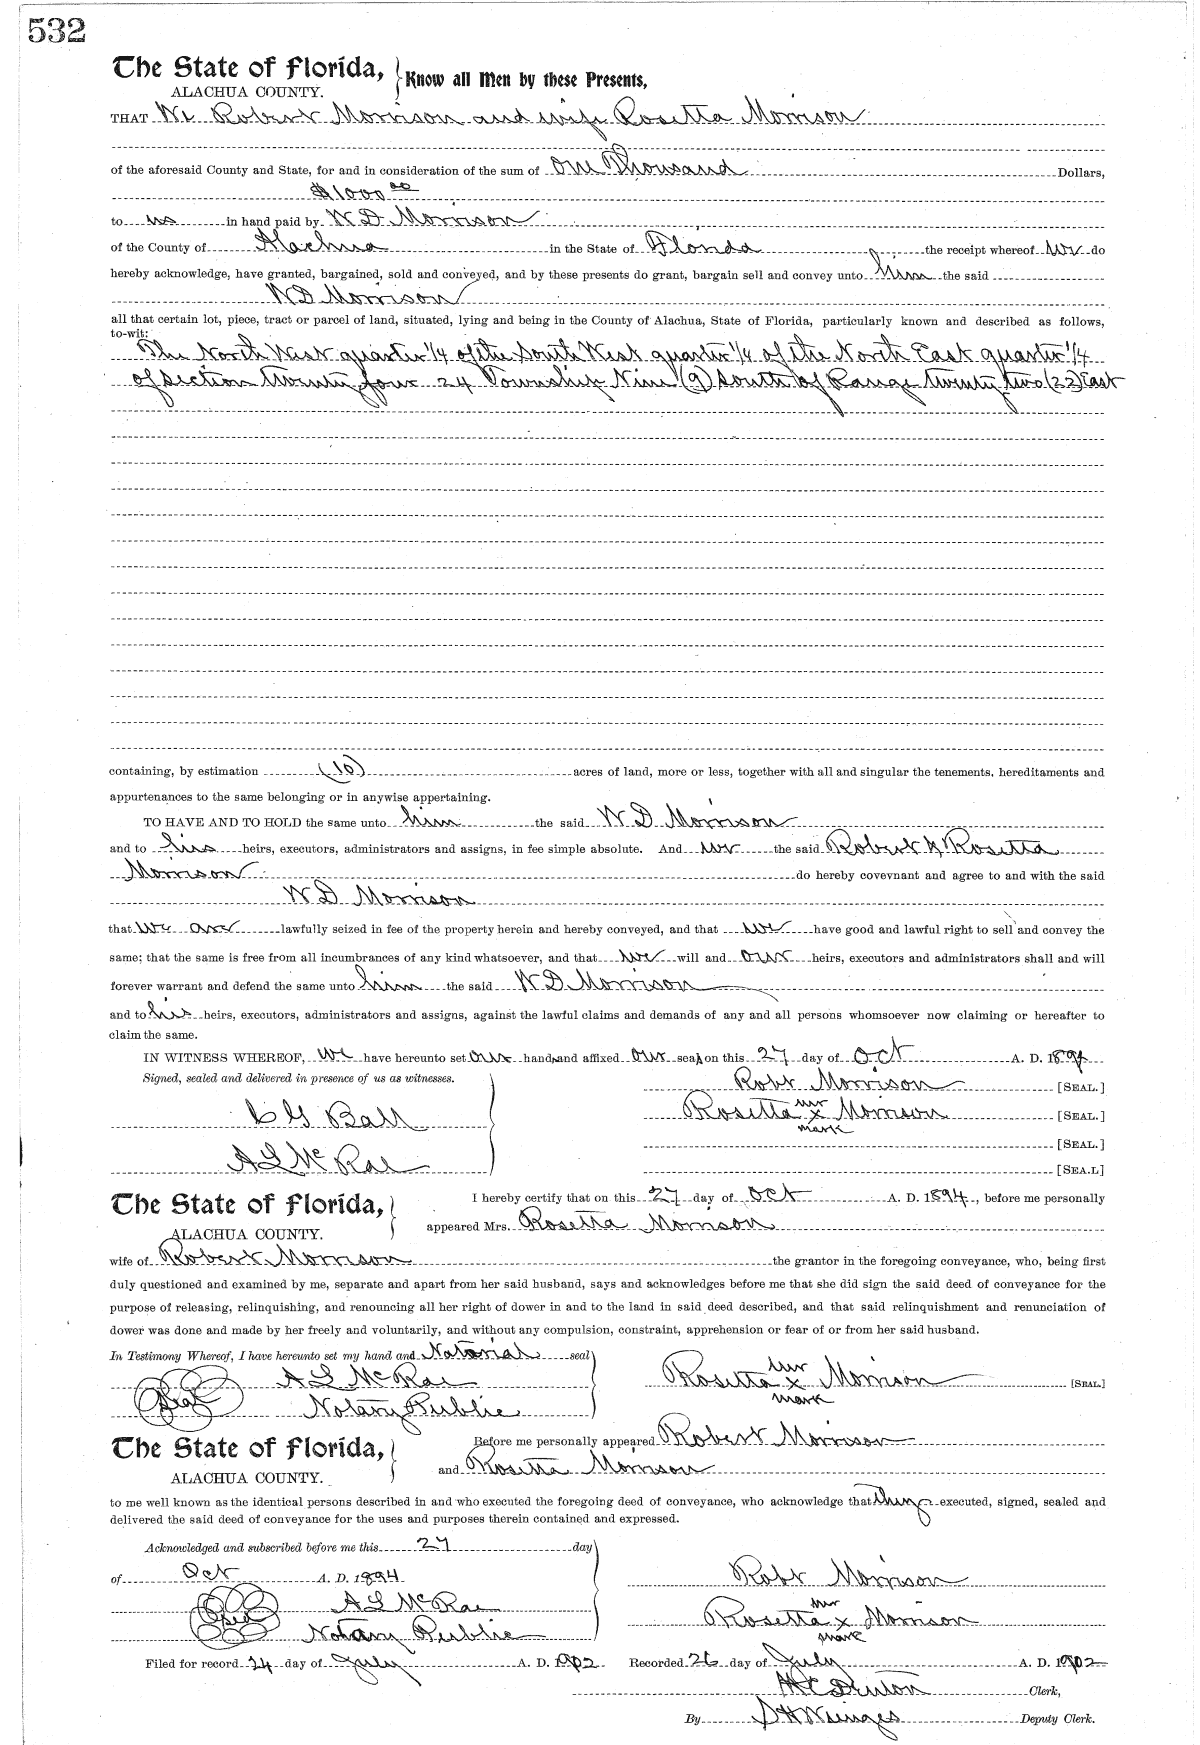 532
The State of Florida, Know all Men by these Presents,
ALACHUA COUNTY.
THAT We Robert Morrison and wife Rosetta Morrison
of the aforesaid County and State, for and in consideration of the sum of One Thousand Dollars,
$1000 00
to us in hand paid by W D Morrison
of the County of Alachua in the State of Florida the receipt whereof we do
hereby acknowledge, have granted, bargained, sold and conveyed, and by these presents do grant, bargain sell and convey unto him the said
W D Morrison
all that certain lot, piece, tract or parcel of land, situated, lying and being in the County of Alachua, State of Florida, particularly known and described as follows,
to-wit:
The North West quarter 1/4 of the South West quarter 1/4 of the North East quarter 1/4
of section twenty four 24 Township Nine (9) South of Range twenty two (22) East
containing, by estimation (10) acres of land, more or less, together with all and singular the tenements, hereditaments and
appurtenances to the same belonging or in anywise appertaining.
TO HAVE AND TO HOLD the same unto him the said W D Morrison
and to his heirs, executors, administrators and assigns, in fee simple absolute. And we the said Robert & Rosetta
Morrison do hereby covevnant and agree to and with the said
W D Morrison
that we are lawfully seized in fee of the property herein and hereby conveyed, and that we have good and lawful right to sell and convey the
same; that the same is free from all incumbrances of any kind whatsoever, and that we will and our heirs, executors and administrators shall and will
forever warrant and defend the same unto him the said W D Morrison
and to his heirs, executors, administrators and assigns, against the lawful claims and demands of any and all persons whomsoever now claiming or hereafter to
claim the same.
IN WITNESS WHEREOF, we have hereunto set our hands and affixed our seals on this 27 day of Oct A. D. 1894
Signed, sealed and delivered in presence of us as witnesses.
Robt Morrison [SEAL.]
C G Ball
Rosetta her x mark Morrison [SEAL.]
[SEAL.]
A L McRae
[SEA.L]
The State of Florida, I hereby certify that on this 27 day of Oct A. D. 1894, before me personally
ALACHUA COUNTY. appeared Mrs. Rosetta Morrison
wife of Robert Morrison the grantor in the foregoing conveyance, who, being first
duly questioned and examined by me, separate and apart from her said husband, says and acknowledges before me that she did sign the said deed of conveyance for the
purpose of releasing, relinquishing, and renouncing all her right of dower in and to the land in said deed described, and that said relinquishment and renunciation of
dower was done and made by her freely and voluntarily, and without any compulsion, constraint, apprehension or fear of or from her said husband.
In Testimony Whereof, I have hereunto set my hand and Notarial seal
Seal A L McRae Rosetta her x mark Morrison [SEAL.]
Notary Public
The State of Florida, Before me personally appeared Robert Morrison
ALACHUA COUNTY. and Rosetta Morrison
to me well known as the identical persons described in and who executed the foregoing deed of conveyance, who acknowledge that they executed, signed, sealed and
delivered the said deed of conveyance for the uses and purposes therein contained and expressed.
Acknowledged and subscribed before me this 27 day
of Oct A. D. 1894 Robt Morrison
Seal A L McRae Rosetta her x mark Morrison
Notary Public
Filed for record 24 day of July A. D. 1902 Recorded 26 day of July A. D. 1902
Clerk,
By S H Wienges Deputy Clerk.